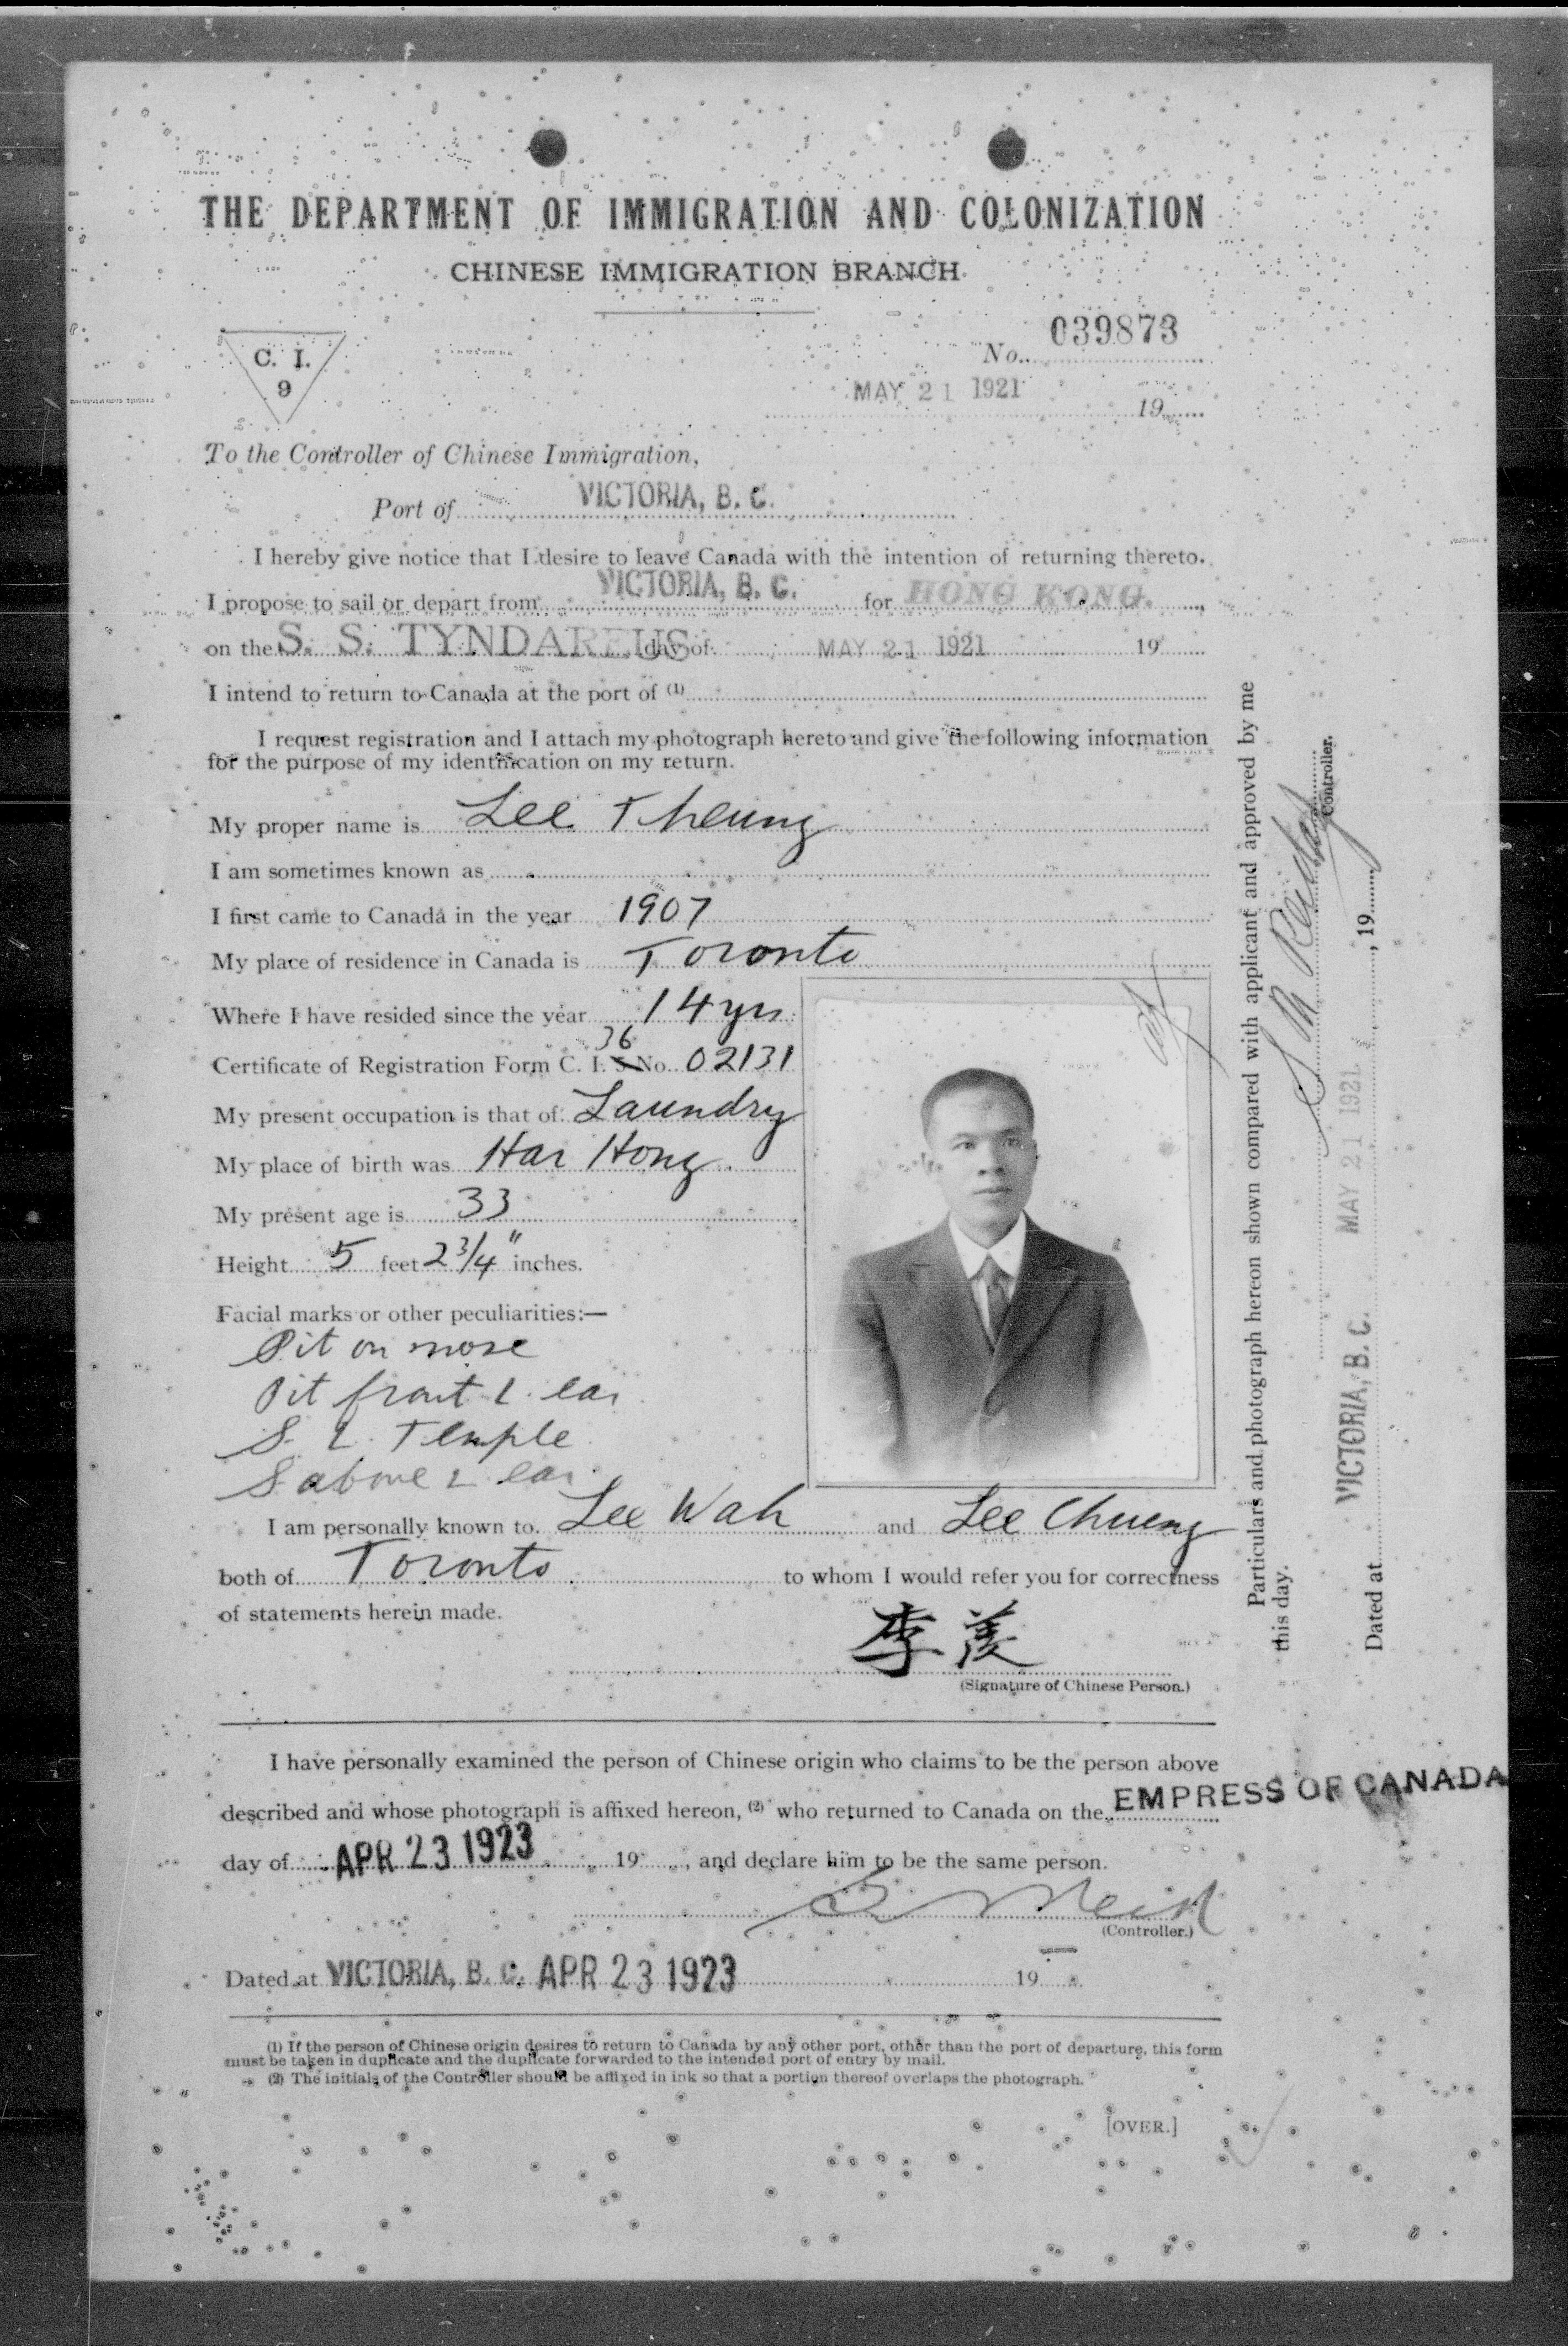 THE DEPARTMENT OF IMMIGRATION AND COLONIZATION
CHINESE IMMIGRATION BRANCH
C. I.
9
No. 039873
MAY 21 1921 19
To the Controller of Chinese Immigration,
Port of VICTORIA, B. C.
I hereby give notice that I desire to leave Canada with the intention of returning thereto.
I propose to sail or depart from VICTORIA, B. C. for HONG KONG.
on the S. S. TYNDAREUS day of MAY 21 1921 19
I intend to return to Canada at the port of (1)
I request registration and I attach my photograph hereto and give the following information
for the purpose of my identification on my return.
My proper name is Lee Theung
I am sometimes known as
I first came to Canada in the year 1907
My place of residence in Canada is Toronto
Where I have resided since the year 14 yrs
36
Certificate of Registration Form C. I. 5 No. 02131
My present occupation is that of Laundry
My place of birth was Har Hong
My present age is 33
Height 5 feet 2 3/4" inches.
Facial marks or other peculiarities:—
Pit on nose
Pit front L. ear
S. L. Temple
S above L ear
I am personally known to Lee Wah and Lee Chueng
both of Toronto to whom I would refer you for correctness
of statements herein made.
李羨
(Signature of Chinese Person.)
I have personally examined the person of Chinese origin who claims to be the person above
described and whose photograph is affixed hereon, (2) who returned to Canada on the EMPRESS OF CANADA
day of APR 23 1923 19 , and declare him to be the same person.
(Controller.)
Dated at VICTORIA, B. C. APR 23 1923 19
(1) If the person of Chinese origin desires to return to Canada by any other port, other than the port of departure, this form
must be taken in duplicate and the duplicate forwarded to the intended port of entry by mail.
(2) The initials of the Controller should be affixed in ink so that a portion thereof overlaps the photograph.
[OVER.]
Particulars and photograph hereon shown compared with applicant and approved by me
this day.
Controller.
Dated at VICTORIA, B. C. MAY 21 1921 , 19